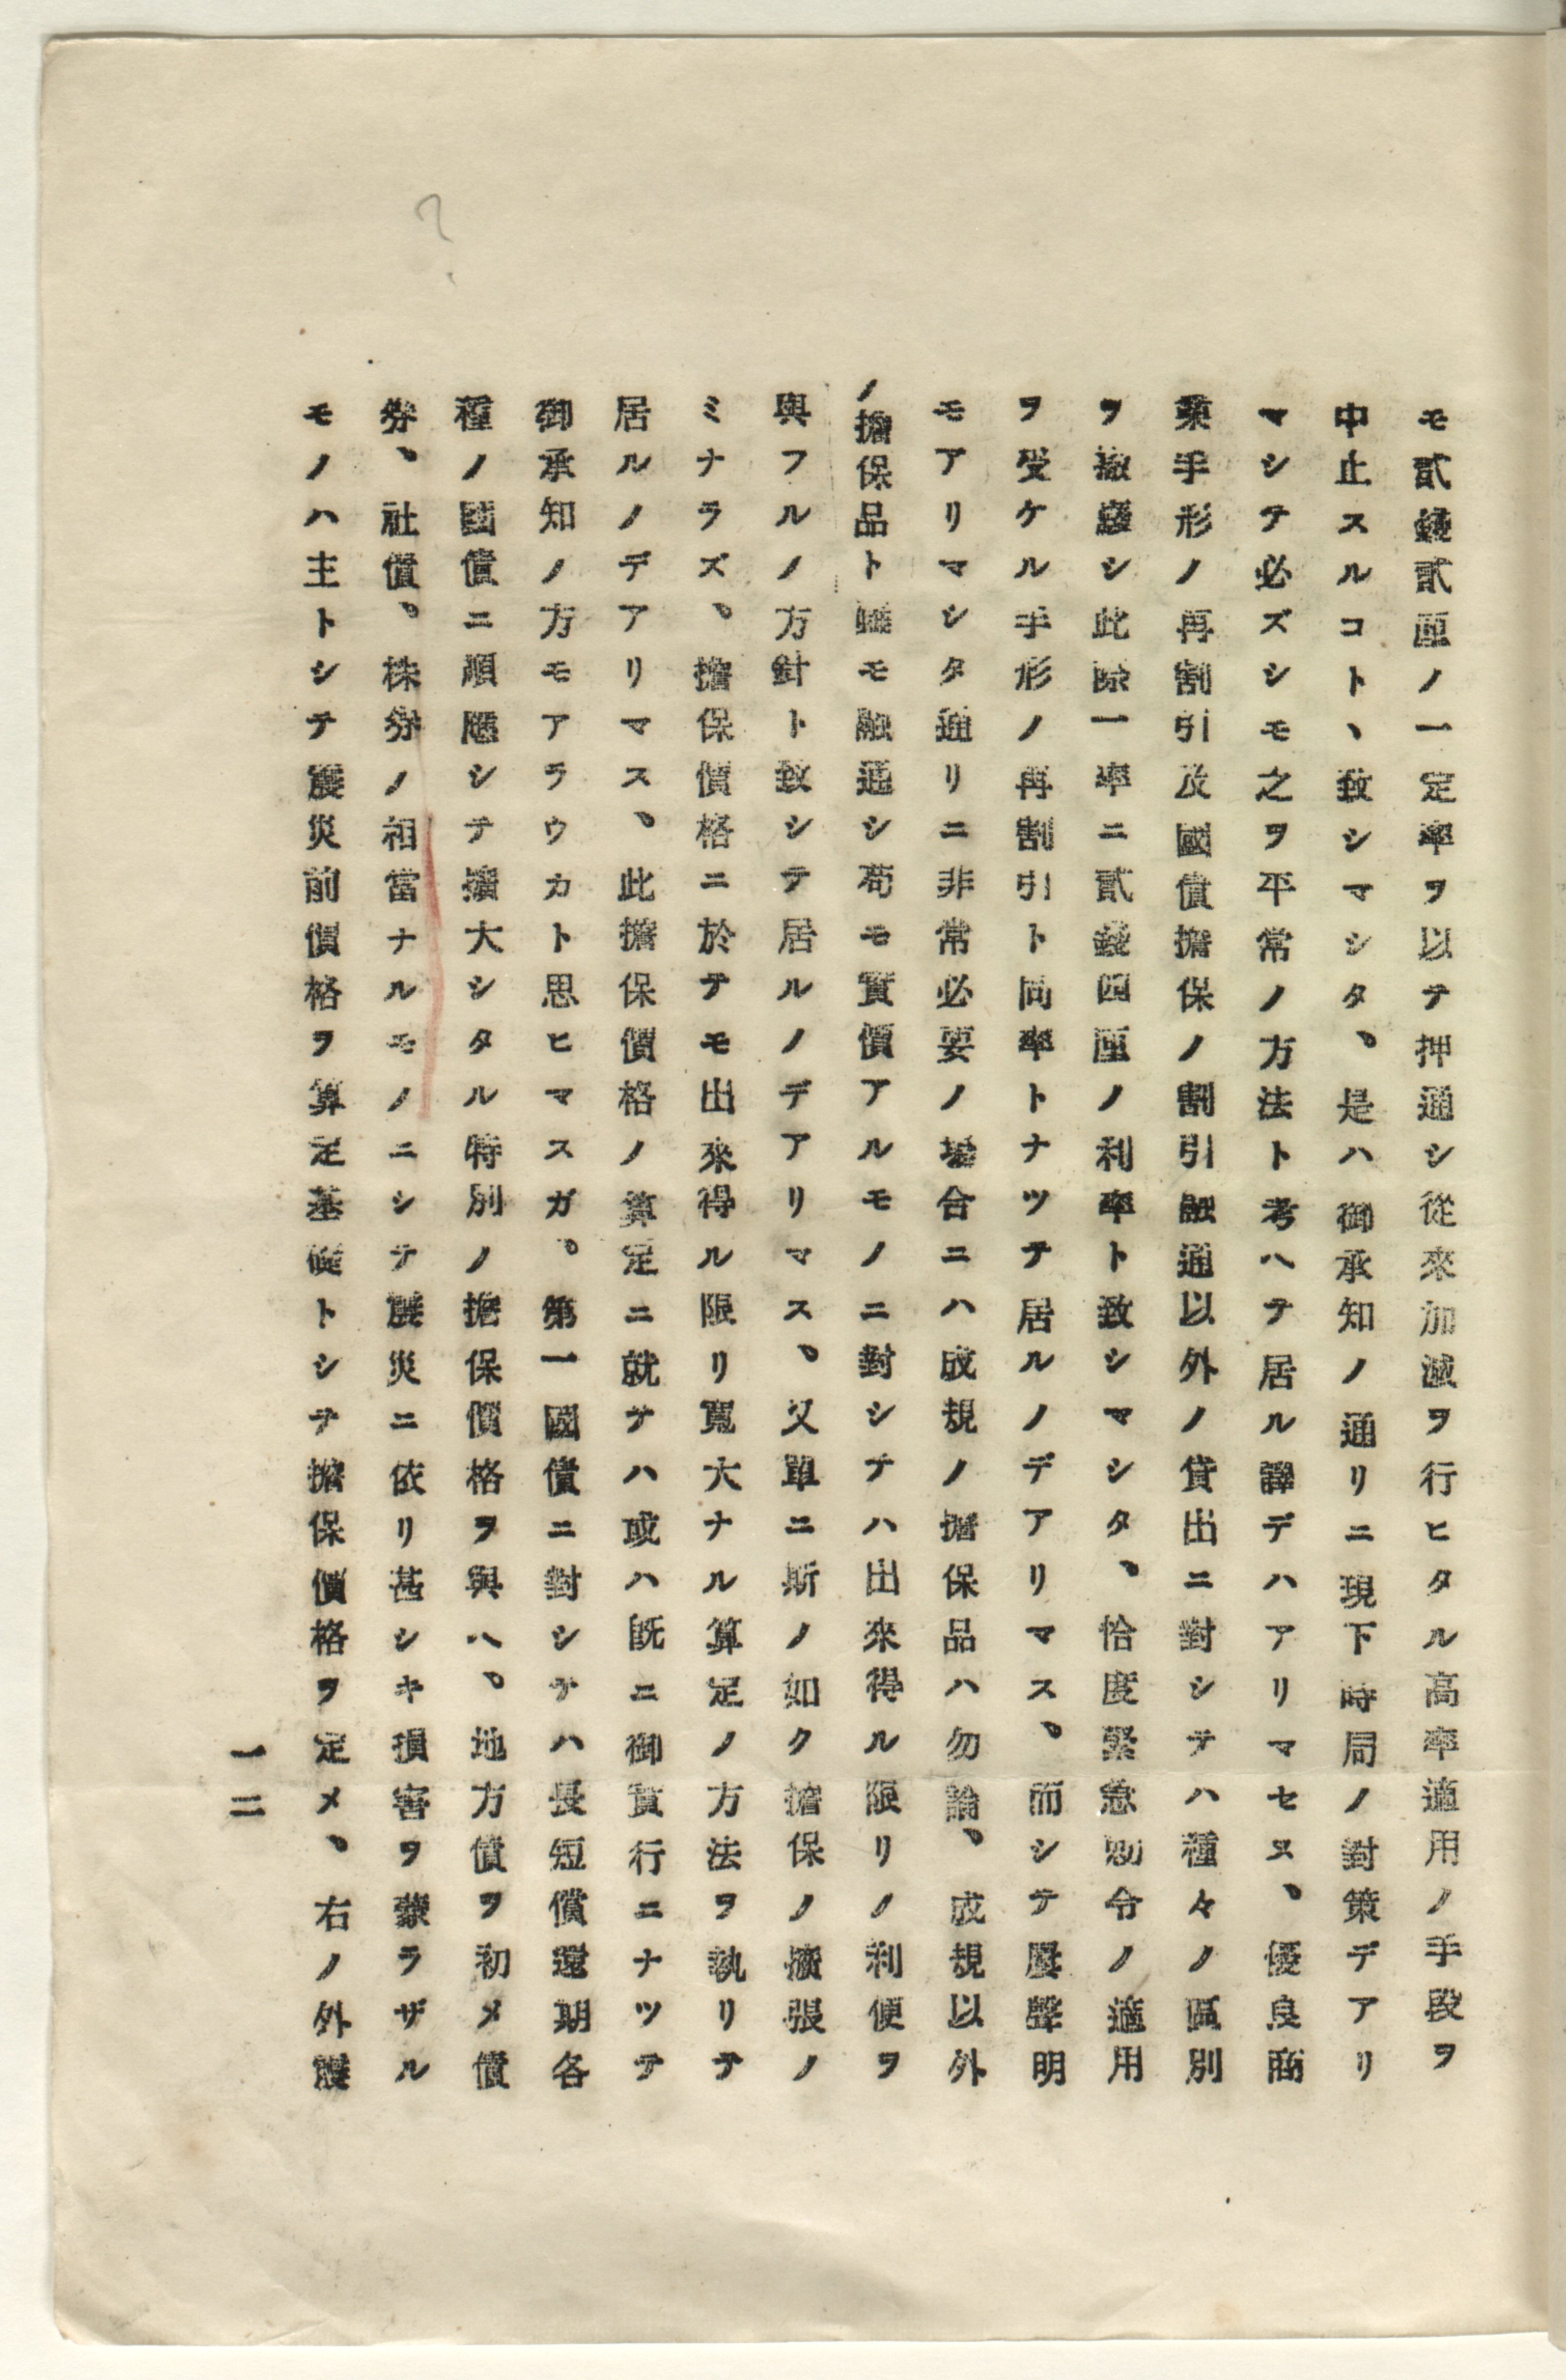 モ貳錢貳厘ノ一定率ヲ以テ押通シ從來加減ヲ行ヒタル高率適用ノ手段ヲ
中止スルコトヽ致シマシタ、是ハ御承知ノ通リニ現下時局ノ對策デアリ
マシテ必ズシモ之ヲ平常ノ方法ト考ヘテ居ル譯デハアリマセヌ、優良商
業手形ノ再割引及國債擔保ノ割引融通以外ノ貸出ニ對シテハ種々ノ區別
ヲ撤廢シ此際一率ニ貳錢四厘ノ利率ト致シマシタ、恰度緊急勅令ノ適用
ヲ受ケル手形ノ再割引ト同率トナツテ居ルノデアリマス、而シテ屢聲明
モアリマシタ通リニ非常必要ノ場合ニハ成規ノ擔保品ハ勿論、成規以外
ノ擔保品ト雖モ融通シ苟モ實價アルモノニ對シテハ出來得ル限リノ利便ヲ
與フルノ方針ト致シテ居ルノデアリマス、又單ニ斯ノ如ク擔保ノ擴張ノ
ミナラズ、擔保價格ニ於テモ出來得ル限リ寬大ナル算定ノ方法ヲ執リテ
居ルノデアリマス、此擔保價格ノ算定ニ就テハ或ハ既ニ御實行ニナツテ
御承知ノ方モアラウカト思ヒマスガ。第一國債ニ對シテハ長短償還期各
種ノ國債ニ順應シテ擴大シタル特別ノ擔保價格ヲ與ヘ、地方債ヲ初メ債
券、社債、株券ノ相當ナルモノニシテ震災ニ依リ甚シキ損害ヲ蒙ラザル
モノハ主トシテ震災前價格ヲ算定基礎トシテ擔保價格ヲ定メ、右ノ外震
一二